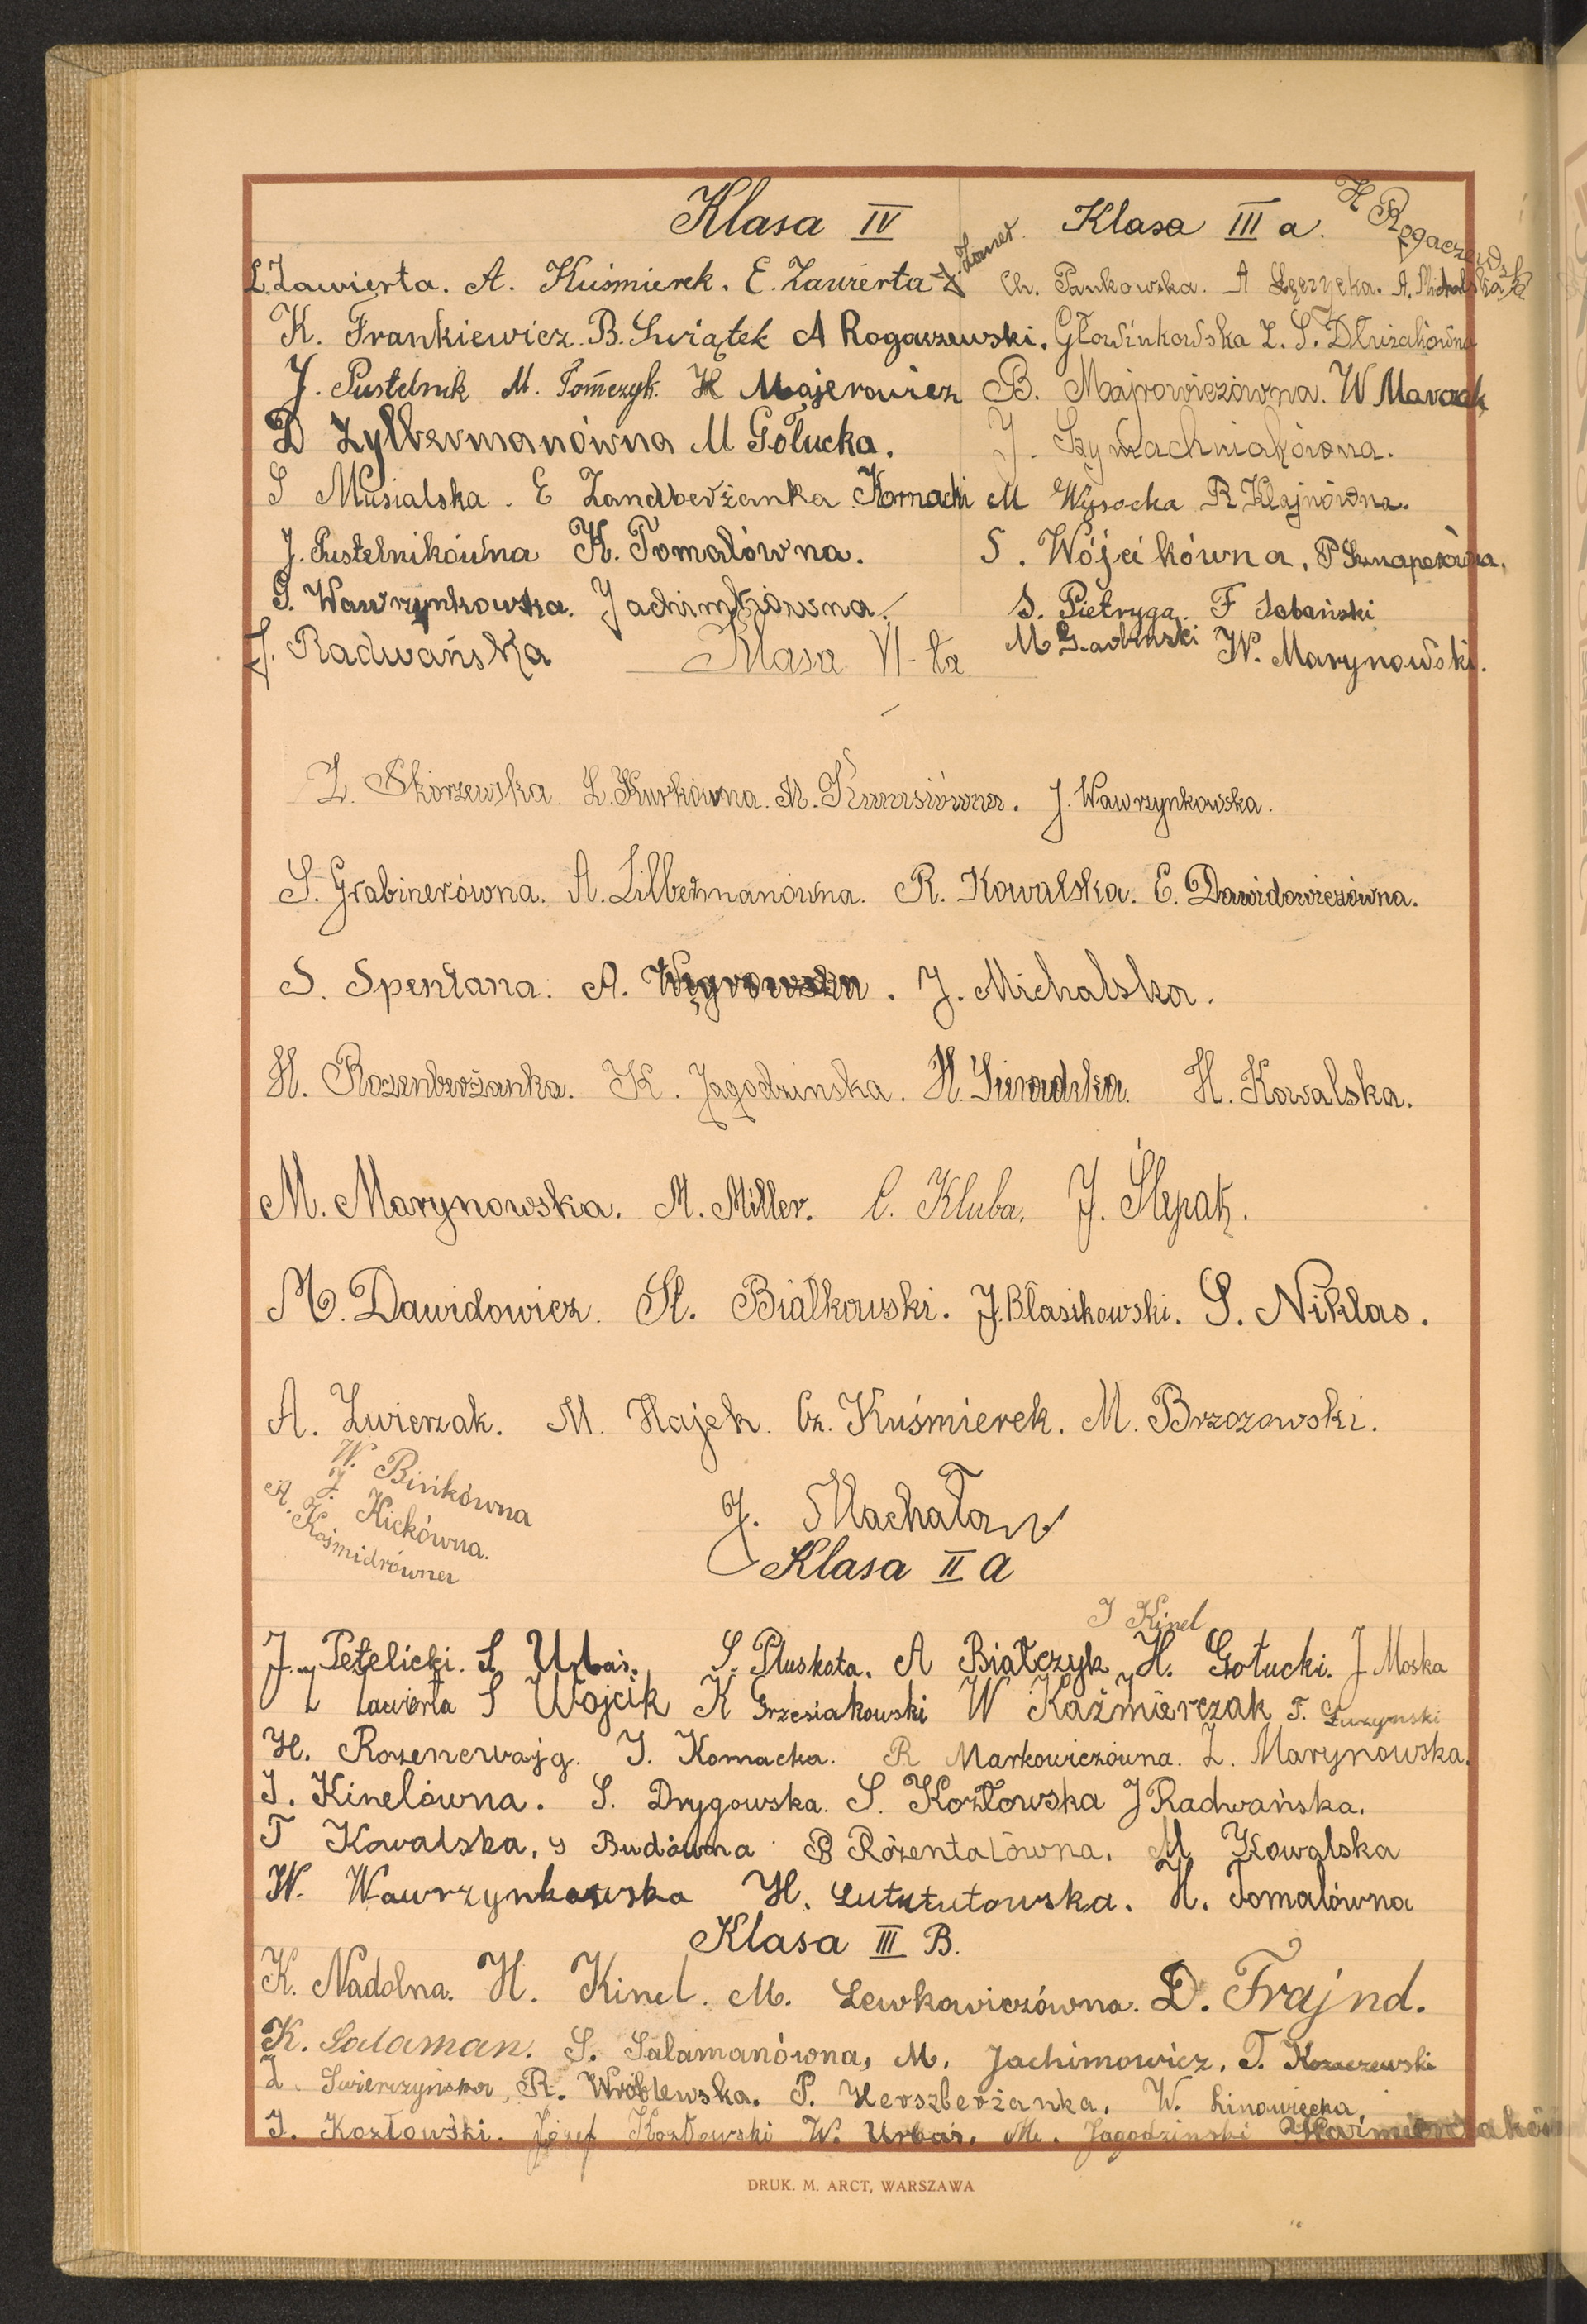 Klasa IV
L. Zawierta. A. Kuśmierek. E. Zawierta
K. Frankiewicz. B. Świątek A Rogaczewski.
J. Pustelnik M. Tomczyk. H Majerowicz
D Zylbermanówna M Gołucka.
S Musialska. E Zandberżanka Kornacki
J. Pustelnikówna K. Tomalówna.
G. Wawrzynkowska. Jachimkówna.
J. Radwańska
Klasa III a.
Ch. Pankowska. A Łęczycka. A. Michalska
Głowinkowska Z. S. Dłużakówna
B. Majrowiczówna. W Marczak
J. Szymachniakówna.
M Wysocka R Klajnówna.
S. Wójcikówna. P Sznaperówna.
S. Pietryga. F Sobański
M Garbinski W. Marynowski.
Klasa VI-ta
Z. Skorzewska. L. Kurkówna. M. J. Wawrzynkowska.
S. Grabinerówna. A. Zilbermanówna. R. Kowalska. E. Dawidowiczówna.
S. Spertana. A. Węgrowska. J. Michalska.
H. Rozenberżanka. K. Jagodzinska. H. Sieradzka. H. Kowalska.
M. Marynowska. M. Miller. C. Kluba. J. Ślepak.
M. Dawidowicz. St. Białkowski. J. Błasikowski. S. Niklas.
A. Zwierzak. M. Hajek. Cz. Kuśmierek. M. Brzozowski.
W. Bińkówna
J. Kickówna.
A. Kośmidrówna
J. Machała
Klasa II a
J Kinel
J. Petelicki. S Urbaś. S. Pluskota. A Białczyk H. Gołucki. J Moska
Z Zawierta S Wójcik K Grzesiakowski W Kaźmierczak T. Łuszynski
H. Rozencwajg. J. Kornacka. R Markowiczówna. Z. Marynowska.
J. Kinelówna. S. Drygowska. S. Kozłowska J Radwańska.
T Kowalska, S Budówna B Rózentalówna. M Kowalska
W. Wawrzynkowska H. Lututowska. H. Tomalówna
Klasa III B.
K. Nadolna. H. Kinel. M. Lewkowiczówna. D. Frajnd.
K. Salaman. S. Salamanówna, M. Jachimowicz. T. Kowaczewski
Z. Swierczyńska, R. Wróblewska. P. Herszberżanka. W. Linowięcka
J. Kozłowski. Józef Kozłowski W. Urbaś. M. Jagodzinski
DRUK. M. ARCT, WARSZAWA